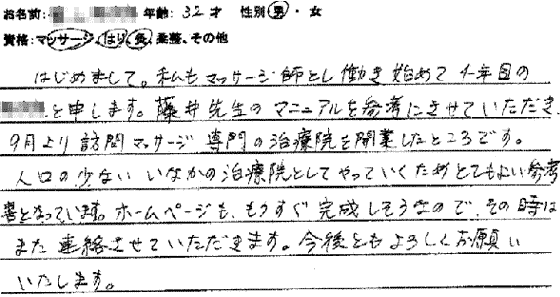 お名前: 年齢: 32才 性別 男・女
資格: マッサージ、はり、灸、柔整、その他
はじめまして。私もマッサージ師とし働き始めて4年目の
と申します。藤井先生のマニュアルを参考にさせていただき、
9月より訪問マッサージ専門の治療院を開業したところです。
人口の少ないいなかの治療院としてやっていくためとてもよい参考
書となっています。ホームページも、もうすぐ完成しそうなので、その時は
また連絡させていただきます。今後ともよろしくお願い
いたします。